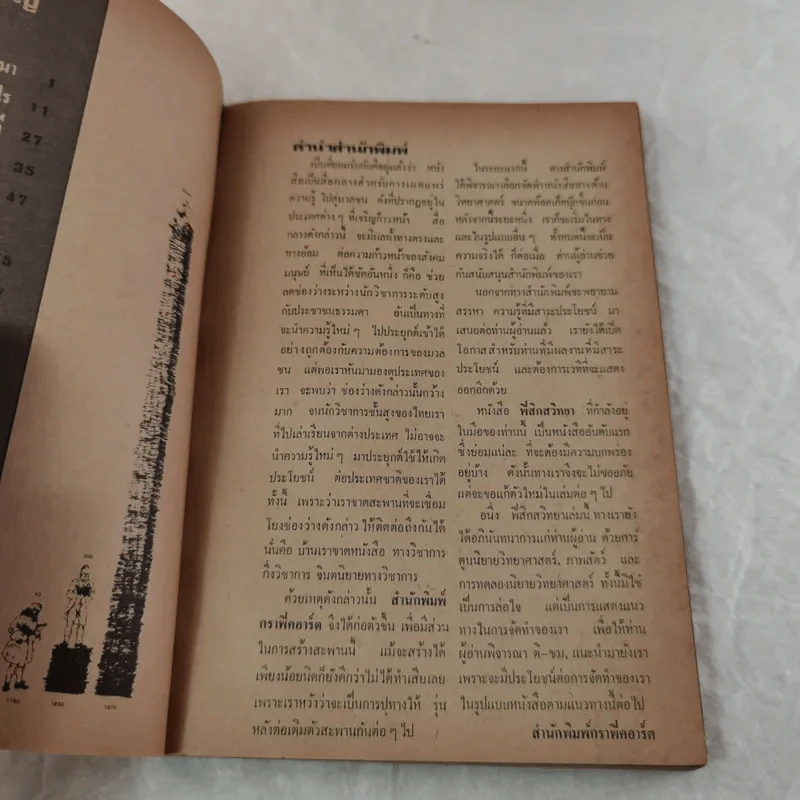 ณา 1
ไร 11
27
35
47
5
10
200
1780
1830
1870
คำนำสำนักพิมพ์
เป็นที่ยอมรับกันดีอยู่แล้วว่า หนัง
สือเป็นสื่อกลางสำหรับการเผยแพร่
ความรู้ ไปสู่มวลชน ดังที่ปรากฏอยู่ใน
ประเทศต่าง ๆ ที่เจริญก้าวหน้า สื่อ
กลางดังกล่าวนี้ จะมีผลทั้งทางตรงและ
ทางอ้อม ต่อความก้าวหน้าของสังคม
มนุษย์ ที่เห็นได้ชัดอันหนึ่ง ก็คือ ช่วย
ลดช่องว่างระหว่างนักวิชาการระดับสูง
กับประชาชนธรรมดา อันเป็นทางที่
จะนำความรู้ใหม่ ๆ ไปประยุกต์เข้าได้
อย่างถูกต้องกับความต้องการของมวล
ชน แต่พอเราหันมามองดูประเทศของ
เรา จะพบว่า ช่องว่างดังกล่าวนั้นกว้าง
มาก จนนักวิชาการชั้นสูงของไทยเรา
ที่ไปเล่าเรียนจากต่างประเทศ ไม่อาจจะ
นำความรู้ใหม่ ๆ มาประยุกต์ใช้ให้เกิด
ประโยชน์ ต่อประเทศชาติของเราได้
ทั้งนี้ เพราะว่าเราขาดสะพานที่จะเชื่อม
โยงช่องว่างดังกล่าว ให้ติดต่อถึงกันได้
นั่นคือ บ้านเราขาดหนังสือ ทางวิชาการ
กึ่งวิชาการ จินตนิยายทางวิชาการ
ด้วยเหตุดังกล่าวนั้น สำนักพิมพ์
กราฟิคอาร์ต จึงได้ก่อตัวขึ้น เพื่อมีส่วน
ในการสร้างสะพานนี้ แม้จะสร้างได้
เพียงน้อยนิดก็ยังดีกว่าไม่ได้ทำเสียเลย
เพราะเราหวังว่าจะเป็นการปูทางให้ รุ่น
หลังต่อเติมตัวสะพานกันต่อ ๆ ไป
ในระยะแรกนี้ ทางสำนักพิมพ์
ได้พิจารณาเลือกจัดทำหนังสือทางด้าน
วิทยาศาสตร์ ขนาดพ๊อคเก็ตบุ๊กขึ้นก่อน
หลังจากนี้ระยะหนึ่ง เราก็จะเริ่มในทาง
และในรูปแบบอื่น ๆ ทั้งหมดนี้จะเป็น
ความจริงได้ ก็ต่อเมื่อ ท่านผู้อ่านช่วย
กันสนับสนุนสำนักพิมพ์ของเรา
นอกจากทางสำนักพิมพ์จะพยายาม
สรรหา ความรู้ที่มีสาระประโยชน์ มา
เสนอต่อท่านผู้อ่านแล้ว เรายังได้เปิด
โอกาสสำหรับท่านที่มีผลงานที่มีสาระ
ประโยชน์ และต้องการเวทีที่จะแสดง
ออกอีกด้วย
หนังสือ ฟิสิกสวิทยา ที่กำลังอยู่
ในมือของท่านนี้ เป็นหนังสืออันดับแรก
ซึ่งย่อมแน่ละ ที่จะต้องมีความบกพร่อง
อยู่บ้าง ดังนั้นทางเราจึงจะไม่ขออภัย
แต่จะขอแก้ตัวใหม่ในเล่มต่อ ๆ ไป
อนึ่ง ฟิสิกสวิทยาเล่มนี้ ทางเรายัง
ได้อภินันทนาการแก่ท่านผู้อ่าน ด้วยการ์
ตูนนิยายวิทยาศาสตร์, ภาพสัตว์ และ
การทดลองนิยายวิทยาศาสตร์ ทั้งนี้มิใช่
เป็นการล่อใจ แต่เป็นการแสดงแนว
ทางในการจัดทำของเรา เพื่อให้ท่าน
ผู้อ่านพิจารณา ติ-ชม, แนะนำมายังเรา
เพราะจะมีประโยชน์ต่อการจัดทำของเรา
ในรูปแบบหนังสือตามแนวทางนี้ต่อไป
สำนักพิมพ์กราฟิคอาร์ต